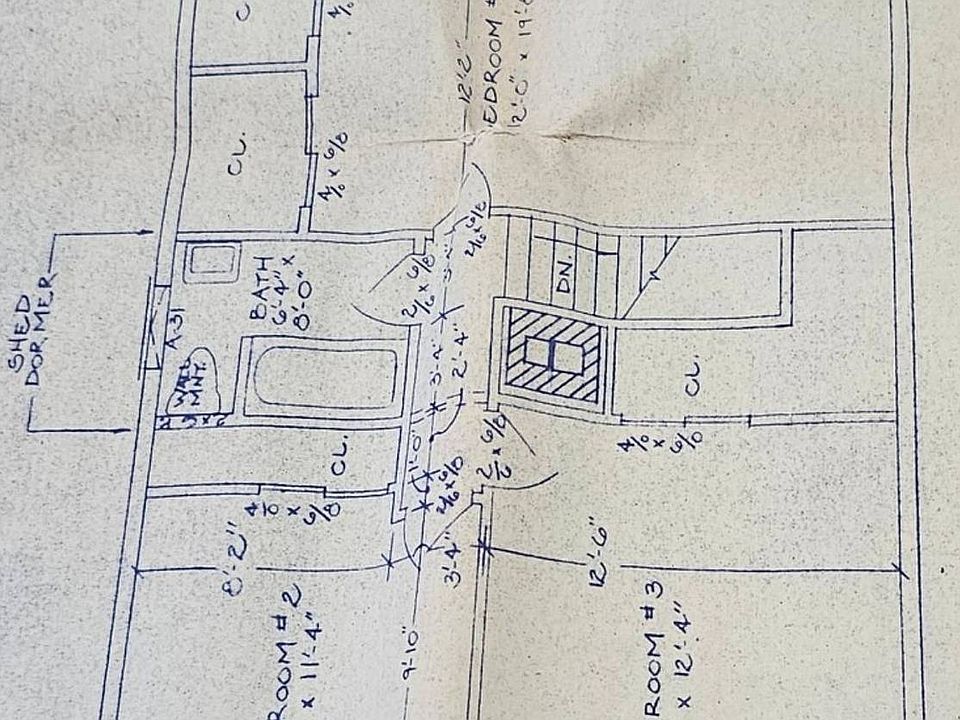 C
4/0
12'-2"
EDROOM #
12'-0" x 19'-
CL.
4/0 x 6/8
SHED
DORMER
BATH
6'-4" x
8'-0"
2/6 x 6/8
2/6 x 6/8
DN.
A-31
WALL
MNT.
3'-4"
2'-4"
CL.
CL.
2 x 6
1'-0"
2/6 x 6/8
2/6 x 6/8
4/0 x 6/8
4/0
x
6/8
8'-2"
3'-4"
12'-6"
ROOM # 2
x 11'-4"
9'-10"
ROOM # 3
x 12'-4"